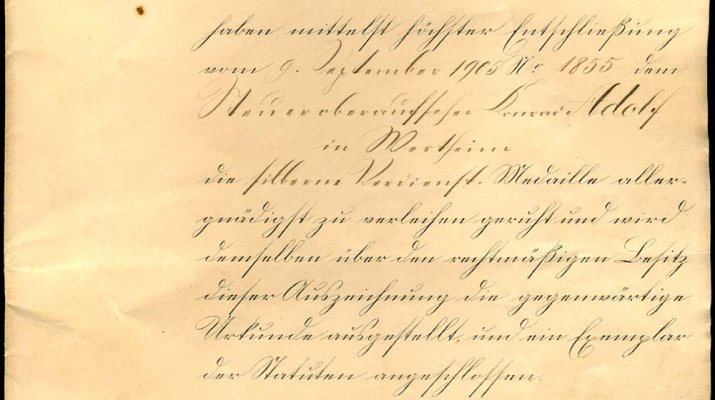 haben mittelst höchster Entschließung
vom 9. September 1905 No 1855 dem
Steueroberaufseher Konrad Adolf
in Wertheim
die silberne Verdienst-Medaille aller-
gnädigst zu verleihen geruht und wird
demselben über den rechtmäßigen Besitz
dieser Auszeichnung die gegenwärtige
Urkunde ausgestellt, und ein Exemplar
der Statuten angeschlossen.